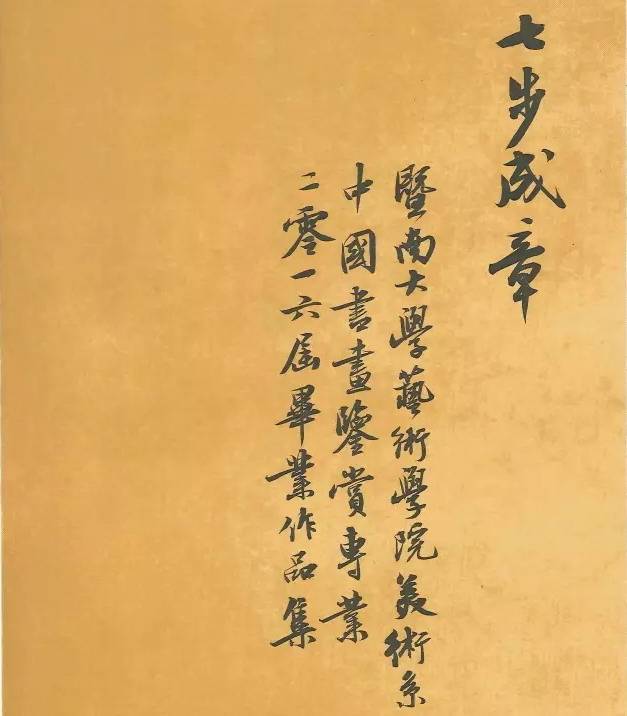 七步成章
暨南大學藝術學院美術系
中國書畫鑒賞專業
二零一六屆畢業作品集